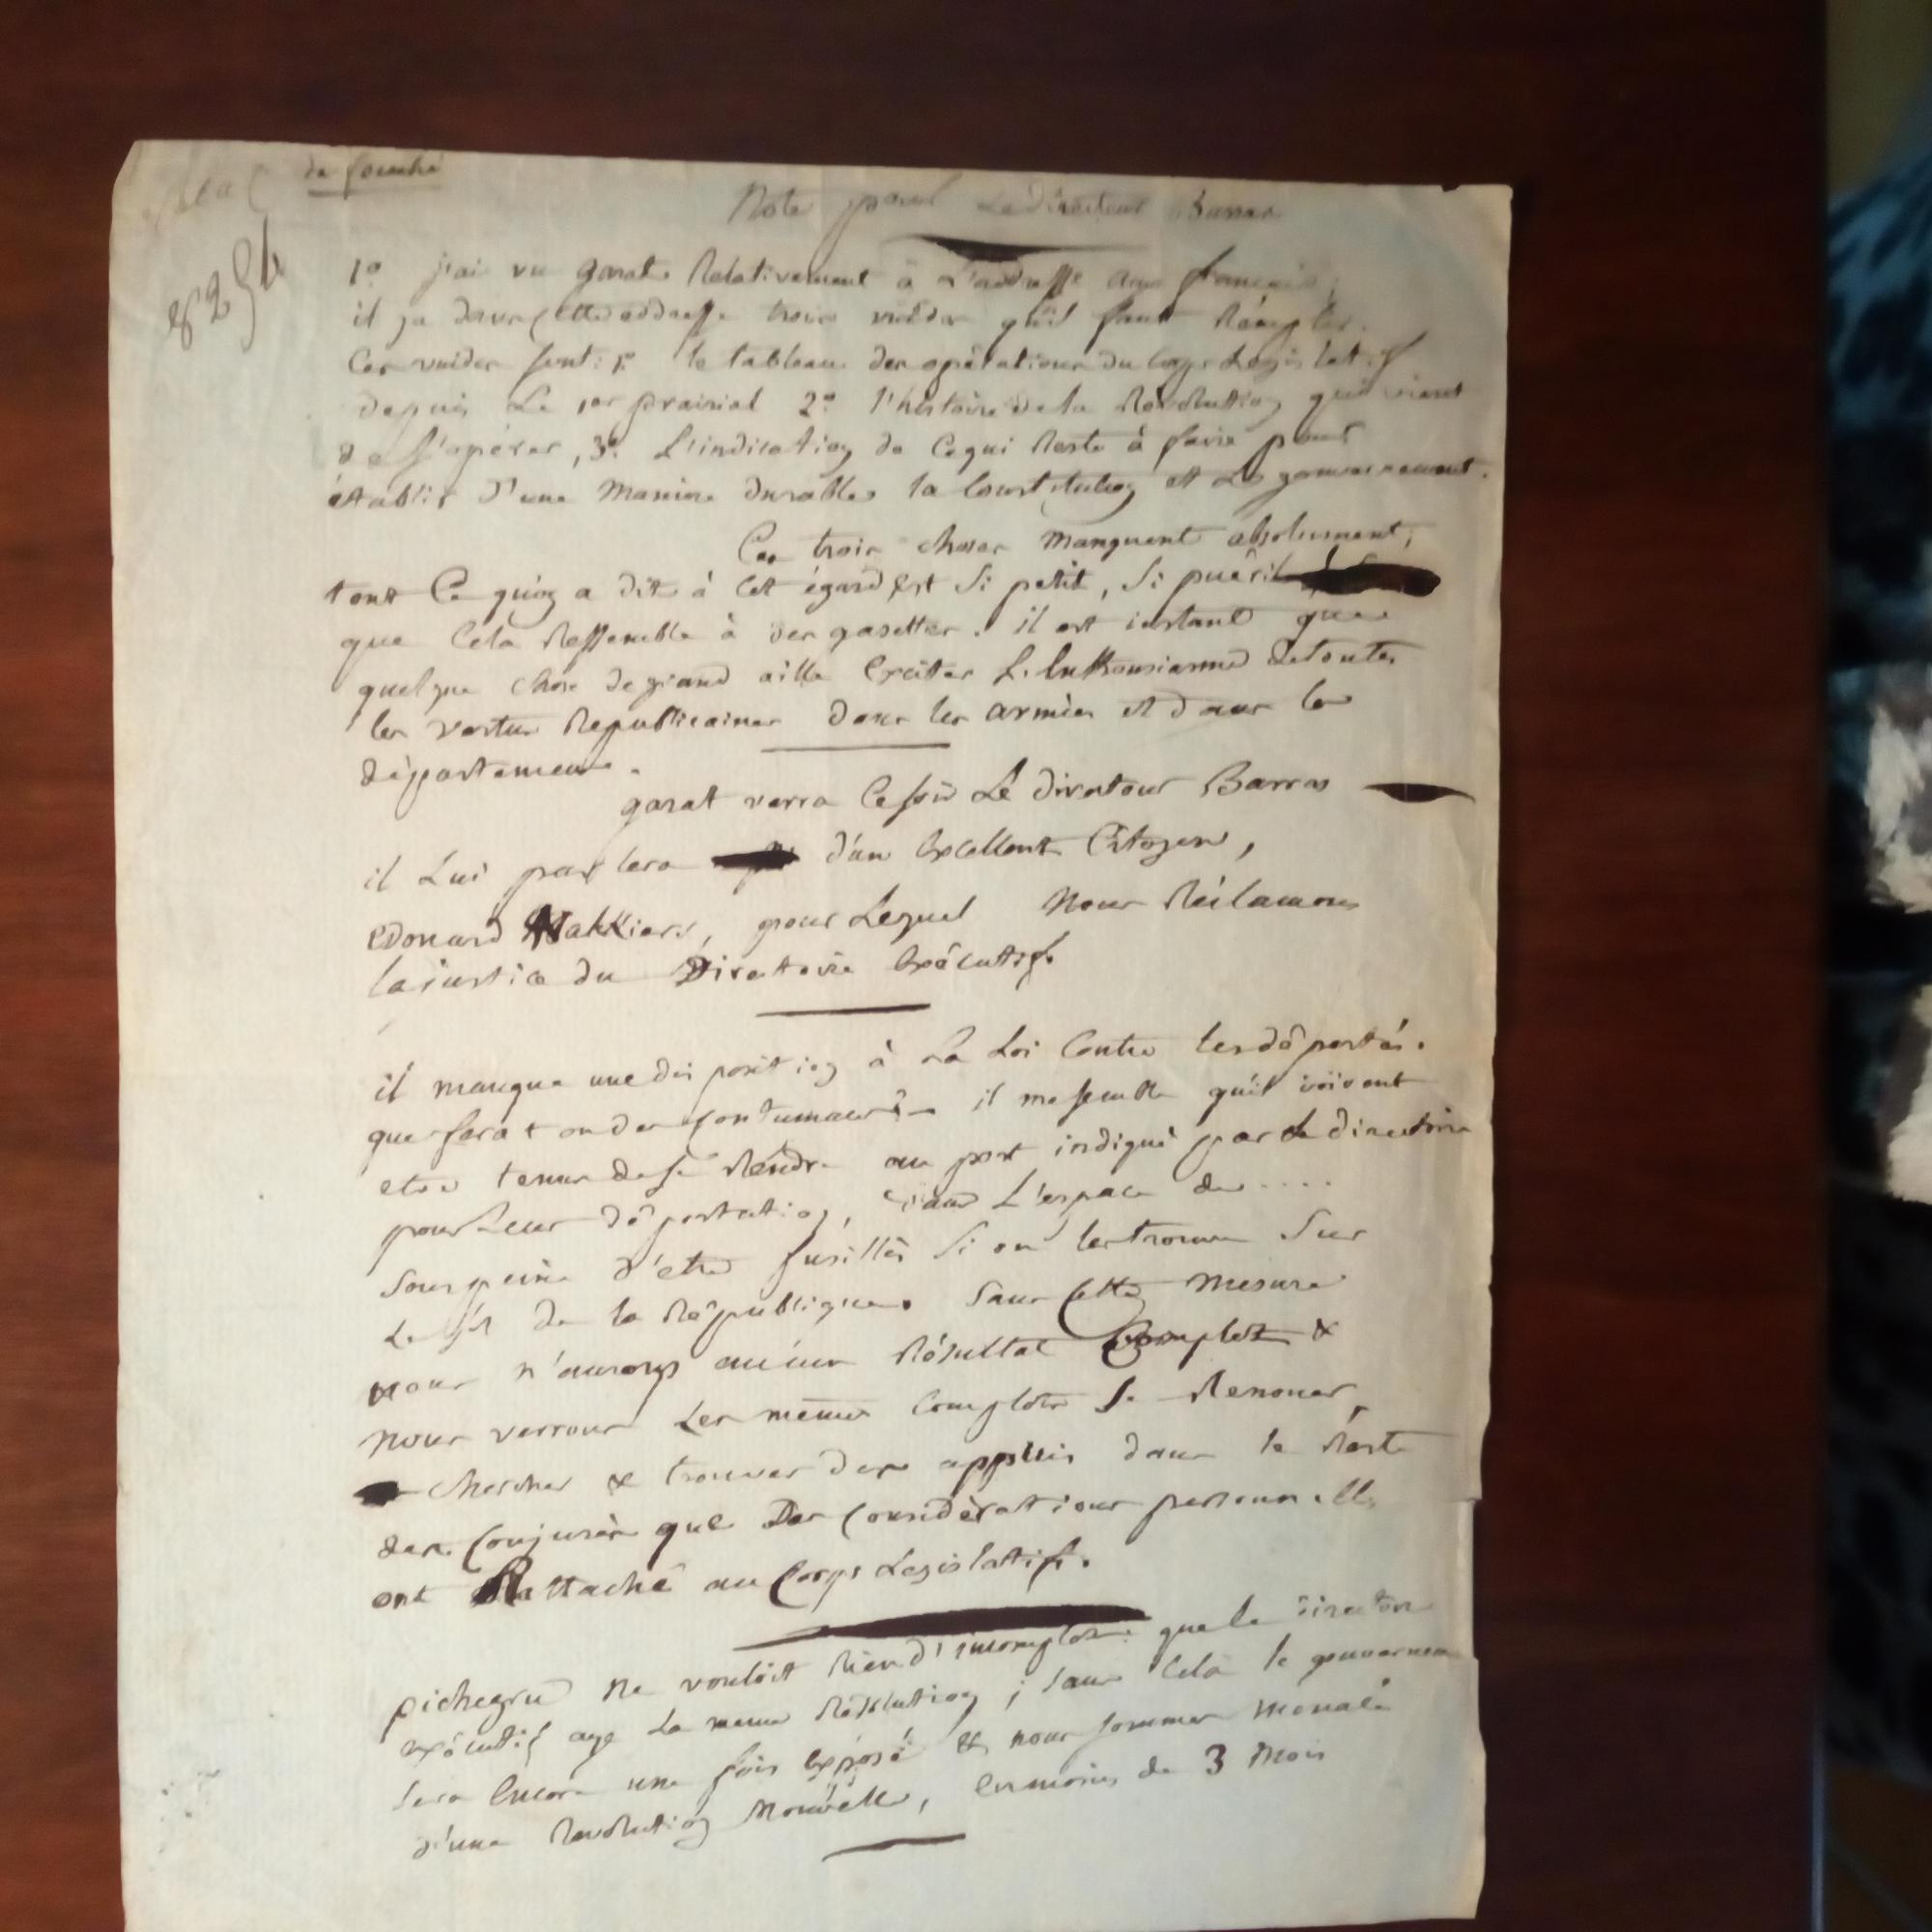 de fouché
Note pour Le Directeur Barras
1° j'ai vu garat Relativement à L'addresse aux français,
il ya dans cette addresse trois vuides qu'il faut Remplir.
Ces vuides sont: 1° le tableau des opérations du Corps Legislatif
depuis Le 1er prairial 2° l'histoire de la Révolution qui vient
de s'opérer, 3° L'indication de Cequi Reste à faire pour
établir d'une Maniere durable la Constitution et Le gouvernement.
Ces trois choses Manquent absolument,
tout Ce qu'on a dit à Cet égard est Si petit, Si puéril
que Cela Ressemble à des gasettes. il est instant que
quelque chose de grand aille Exciter L'Enthousiasme de toutes
les vertus Republicaines dans les armées et dans les
départemens.
garat verra Ce soir Le directeur Barras
il Lui parlera d'un Excellent Citoyen,
Edouard Walkiers, pour Lequel Nous Réclamons
la justice du Directoire Exécutif.
il manque une disposition à La Loi Contre les déportés.
que fera t on des Contumaces? il me semble qu'ils doivent
etre tenus de se Rendre au port indiqué par Le directoire
pour Leur déportation, dans L'espace de ....
Sous peine d'etre fusillés Si on les trouve Sur
Le sol de la République. Sans Cette Mesure
nous n'aurons aucun Résultat Complet &
Nous verrons Les mêmes Complots Se Renouer,
chercher & trouver des appuis dans le Reste
des Conjurés que Des Considérations personnelles
ont Rattaché au Corps Legislatif.
pichegru Ne vouloit Rien d'incomplet: que le directoire
exécutif aye La meme Résolution; Sans Cela le gouvernem
Sera Encore une fois Exposé & nous sommes Menacés
d'une Revolution Nouvelle, En moins de 3 Mois